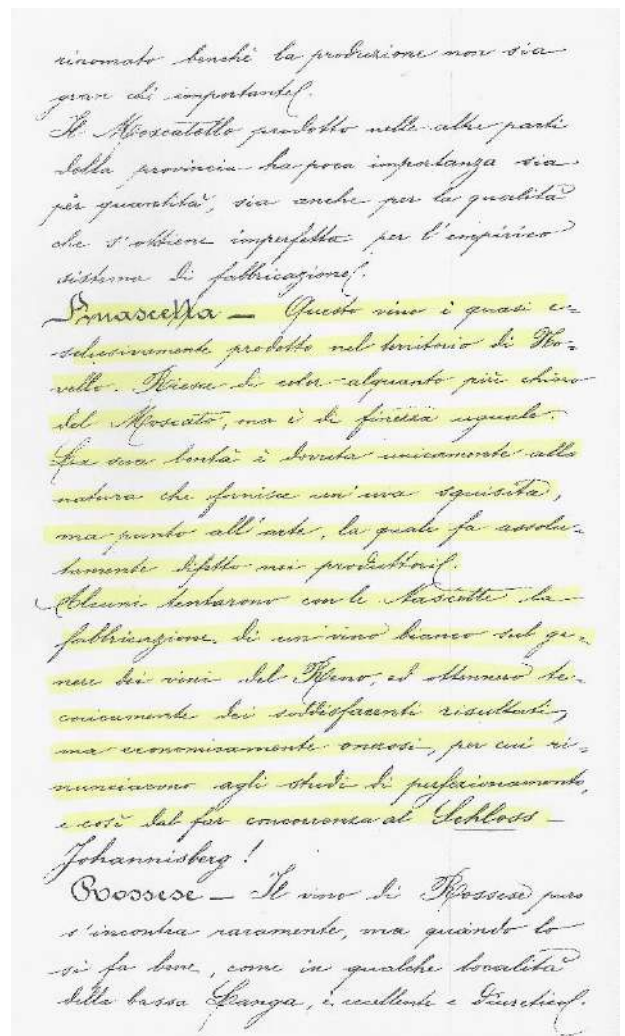 rinomato benchè la produzione non sia
gran chè importante.
Il Moscatello prodotto nelle altre parti
della provincia ha poca importanza sia
per quantità, sia anche per la qualità
che s'ottiene imperfetta per l'empirico
sistema di fabbricazione.
— Questo vino è quasi e-
sclusivamente prodotto nel territorio di No-
vello. Riesce di color alquanto più chiaro
del Moscato, ma è di finezza uguale.
La sua bontà è dovuta unicamente alla
natura che fornisce un'uva squisita,
ma punto all'arte, la quale fa assolu-
tamente difetto nei produttori.
Alcuni tentarono con le Nascette la
fabbricazione di un vino bianco sul ge-
nere dei vini del Reno, ed ottennero tec-
nicamente dei soddisfacenti risultati,
ma economicamente onerosi, per cui ri-
nunciarono agli studi di perfezionamento,
e così dal far concorrenza al Schloss-
Johannisberg!
Rossese — Il vino di Rossese puro
s'incontra raramente, ma quando lo
si fa bene, come in qualche località
della bassa Langa, è eccellente e diuretico.